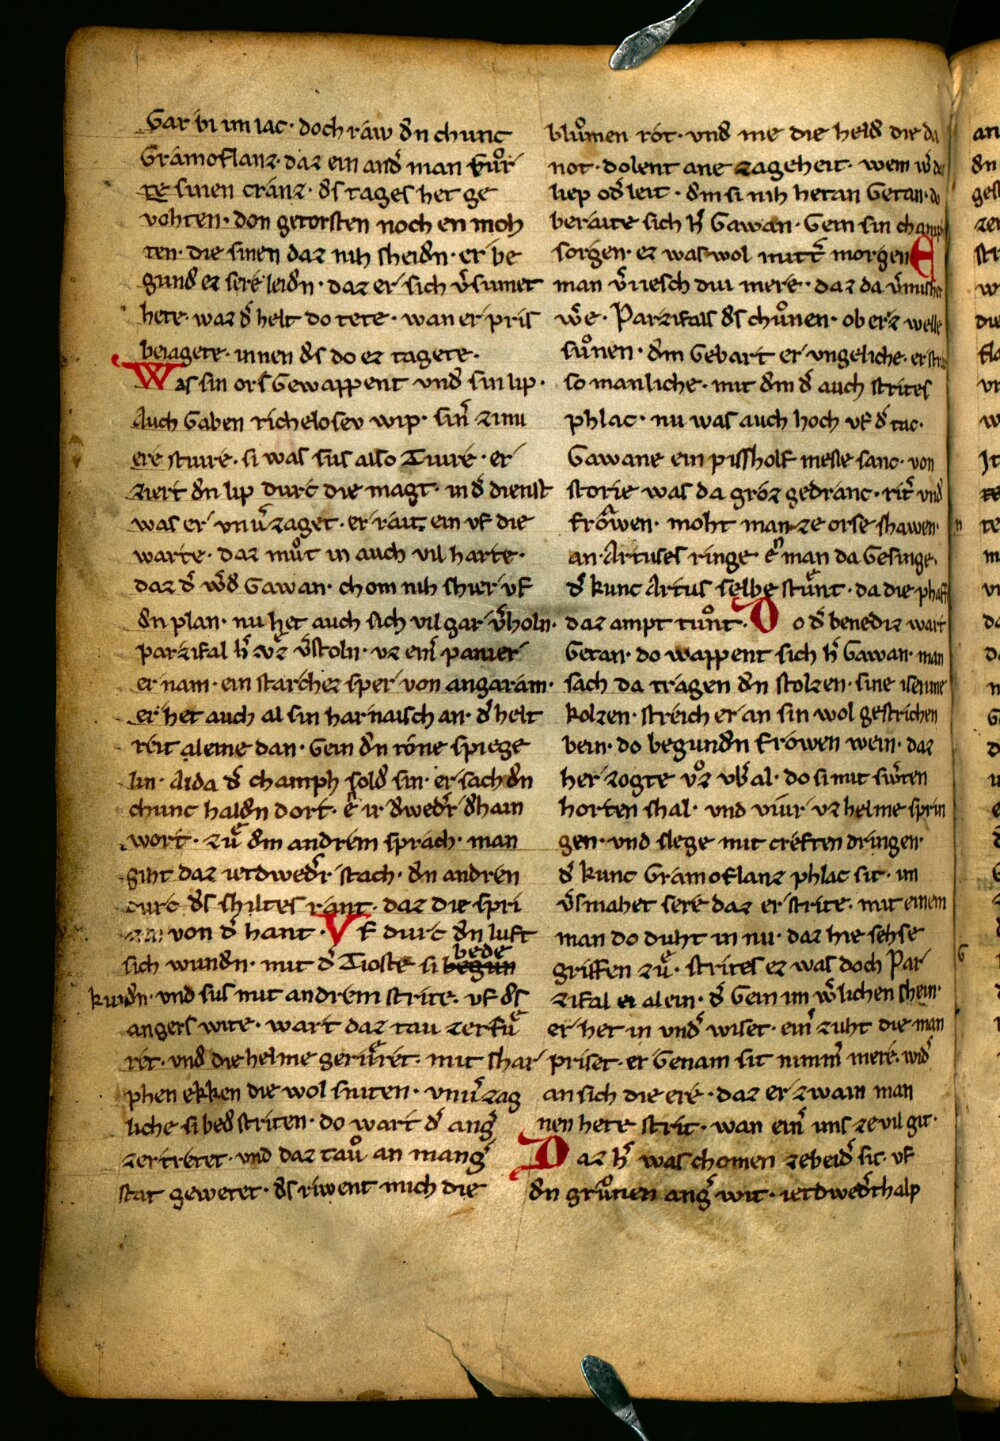 Gar bi im lac · doch raw dn chunc
Gramoflanz · daz ein and᷎ man fuͦr
te sinen cranz · ds tages het ge
vohten · don getorsten noch en moh
ten · die sinen daz nih sheidn · er be
gund ez sere leidn · daz er sich v᷎sumet
hete · waz d᷎ helt do tete · wan er pris
beiagete · innen ds do ez tagete ·
Was sin ors Gewappent vnd sin lip ·
Auch Gaben richelosev wip · sin᷎ zimi
ere sture · si was sus also Tiure · er
ziert dn lip durc die magt · in d᷎ dienst
was er vnu᷎zaget · er rait ein vf die
warte · daz muͦt in auch vil harte ·
daz d᷎ w᷎d Gawan · chom nih shier vf
dn plan · nu het auch sich vil gar v᷎holn ·
parzifal h᷎ vz v᷎stoln · vz eim᷎ panier
er nam · ein starchez sper von angaram ·
er het auch al sin harnaisch an · d᷎ helt
reit aleine dan · Gein dn rone spiege
lin · Alda d᷎ champh sold sin · er sach dn
chunc haldn dort · e ir dwed᷎r dhain
wort · zuͤ dm andrem sprach · man
giht daz ietdwed᷎r stach · dn andren
durc ds shiltes rant · daz die spri
zen von d᷎ hant · Vf durc dn luft
sich wundn · mit d᷎ Tioste si bede
begun
kundn · vnd sus mit andrem strite · vf ds
angers wite · wart daz tau zerfuͤ
ret · vnd die helme geruͤret · mit shar
phen ekken die wol sniten · vnu᷎zag
liche si bed striten · do wart d᷎ ang᷎
zertretet · vnd daz tauͦ an mang᷎
stat gewetet · ds riwent mich die
bluͦmen rot · vnd me die held die da
not · dolent ane zageheit · wem w᷎ da
liep od᷎ leit · dm si nih hetan Getan · do
beraite sich h᷎ Gawan · Gein sin champhs
sorgen · ez was wol mitt᷎ morgen E
man v᷎iesch diu mere · daz da v᷎misset
w᷎e · Parzifals ds chuͦnen · ob erz welle
suͦnen · dm Gebart er vngeliche · er strait
so manliche · mit dm d᷎ auch strites
phlac · nu was auch hoch vf d᷎ tac ·
Gawane ein pissholf messe sanc · von
storie was da groz gedranc · rit᷎ vnd
frowen · moht man ze orse shawen ·
an Artuses ringe · e man da Gesinge ·
d᷎ kunc Artus selbe stuͤnt · da die phaff
daz ampt tuͦnt · Do d᷎ benediz wart
Getan · do wappent sich h᷎ Gawan · man
sach da tragen dn stolzen · sine isenine
kolzen · streich er an sin wol gestrichen
bein · do begundn frowen wein · daz
her zogte vͦz vb᷎al · do si mit sw᷎ten
horten shal · vnd viur vz helme sprin
gen · vnd slege mit creften dringen ·
d᷎ kunc Gramoflanz phlac sit · im
v᷎smahet sere daz er strite · mit einem
man do duht in nu · daz hie sehse
griffen zuͤ · strites ez was doch Par
zifal alein · d᷎ Gein im w᷎lichen shein ·
er het in vnd᷎ wiset · ein᷎ zuht die man
priset · er Genam sit nimm᷎ mere · wid᷎
an sich die ere · daz er zwain man
nen hete strit · wan ein᷎ uns ze vil git ·
Daz h᷎ was chomen ze beid᷎ sit · vf
dn gruͦnen ang᷎ wit · ietdwed᷎thalp